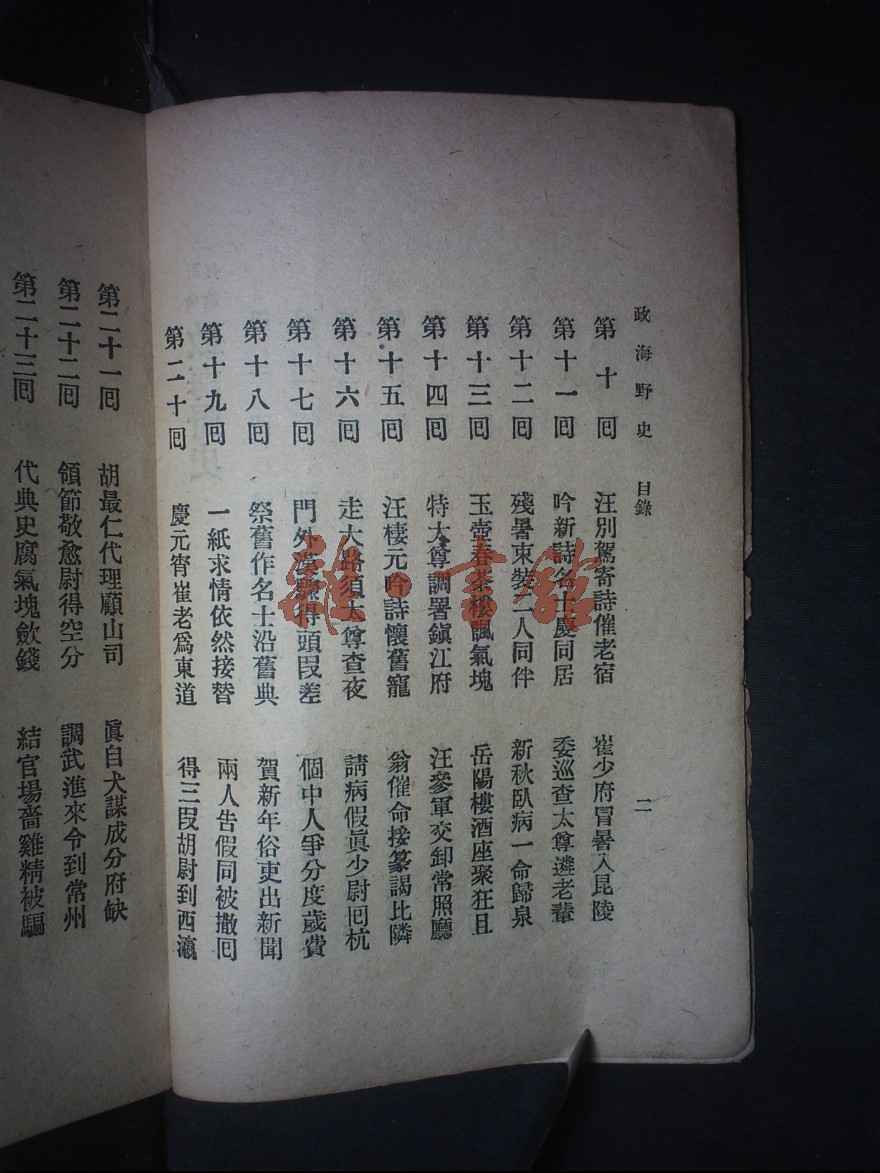 政海野史 目錄 二
第十回 汪別駕寄詩催老宿 崔少府冒暑入昆陵
第十一回 吟新詩名士慶同居 委巡查太尊遴老輩
第十二回 殘暑束裝二人同伴 新秋臥病一命歸泉
第十三回 玉壺春茶樓諷氣塊 岳陽樓酒座聚狂且
第十四回 特大尊調署鎭江府 汪參軍交卸常照廳
第十五回 汪棲元吟詩懷舊寵 翁催命接篆謁比隣
第十六回 走大路須太尊查夜 請病假眞少尉回杭
第十七回 門外漢 得頭段差 個中人爭分度歲費
第十八回 祭舊作名士沿舊典 賀新年俗吏出新聞
第十九回 一紙求情依然接替 兩人告假同被撤回
第二十回 慶元宵崔老爲東道 得三段胡尉到西瀛
第二十一回 胡最仁代理顧山司 眞自犬謀成分府缺
第二十二回 領節敬愈尉得空分 調武進來令到常州
第二十三回 代典史腐氣塊歛錢 結官場嗇雞精被騙
雒書館